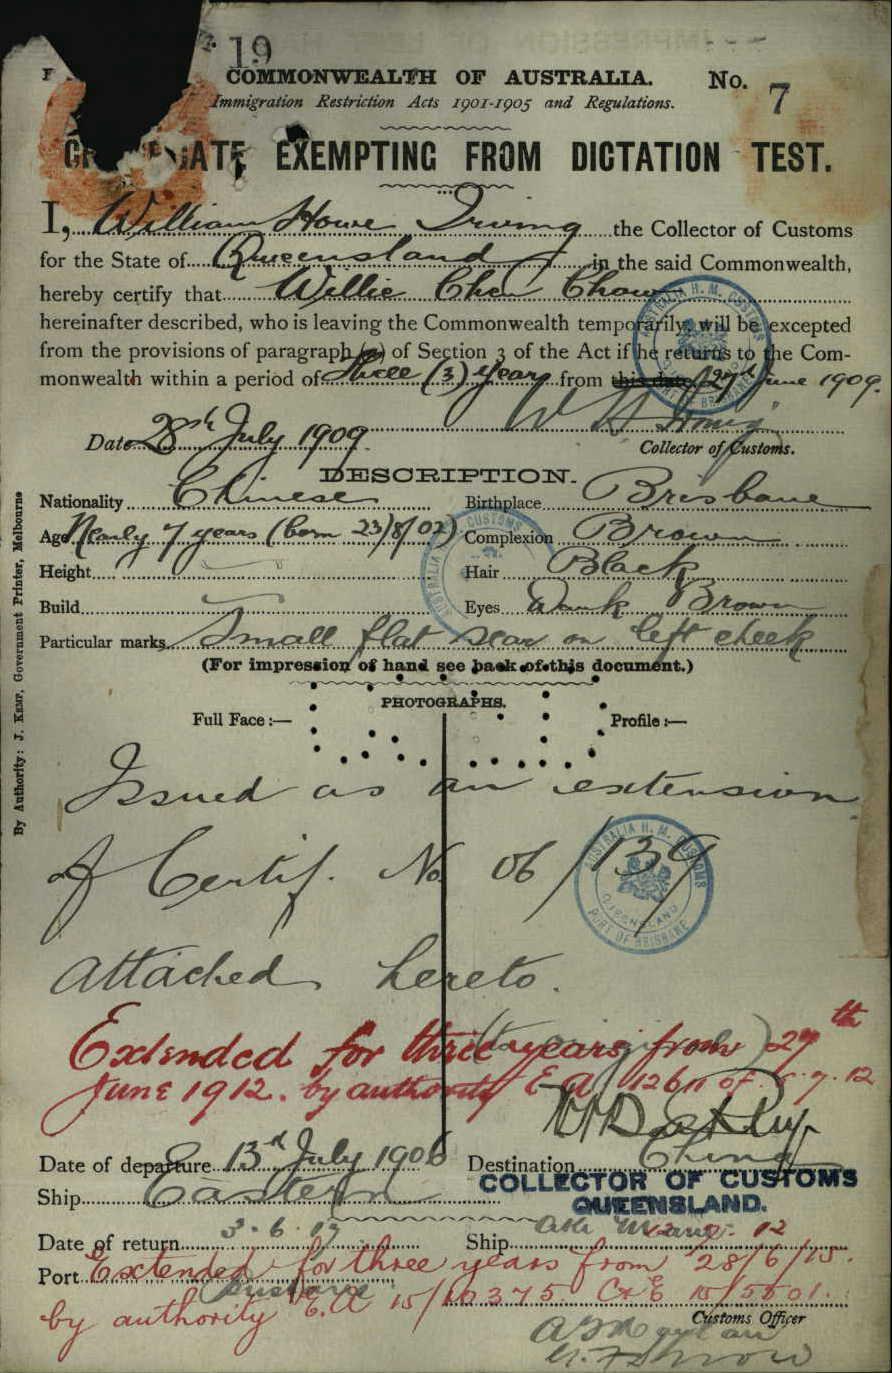 19
COMMONWEALTH OF AUSTRALIA. No. 7
Immigration Restriction Acts 1901-1905 and Regulations.
EXEMPTING FROM DICTATION TEST.
I, William Howe Irving the Collector of Customs
for the State of Queensland in the said Commonwealth,
hereby certify that Willie Chow
hereinafter described, who is leaving the Commonwealth temporarily, will be excepted
from the provisions of paragraph (a) of Section 3 of the Act if he returns to the Com-
monwealth within a period of three (3) years from this date 27th June 1909.
W H Irving
Date 28th July 1909 Collector of Customs.
DESCRIPTION.
Nationality Chinese Birthplace Brisbane
Age Nearly 7 years (born 23/8/02) Complexion Brown
Height Hair Black
Build Eyes Dark Brown
Particular marks Small flat scar on left cheek
(For impression of hand see back of this document.)
PHOTOGRAPHS.
Full Face:— Profile:—
Issued as an extension
of Certif. No. 06/139
attached hereto.
Extended for three years from 27th
June 1912. by authority E A 12611 of 5.7.12
Date of departure 13th July 1906 Destination China
COLLECTOR OF CUSTOMS
QUEENSLAND.
Ship Eastern
12.7.12
Date of return 3.6.17 Ship
Port Brisbane
Extended for three years from 28/6/15.
by authority E.A 15/10375. C&E 15/5501.
Customs Officer
By Authority: J. Kemp, Government Printer, Melbourne
AUSTRALIA H. M. CUSTOMS
QUEENSLAND
PORT OF BRISBANE